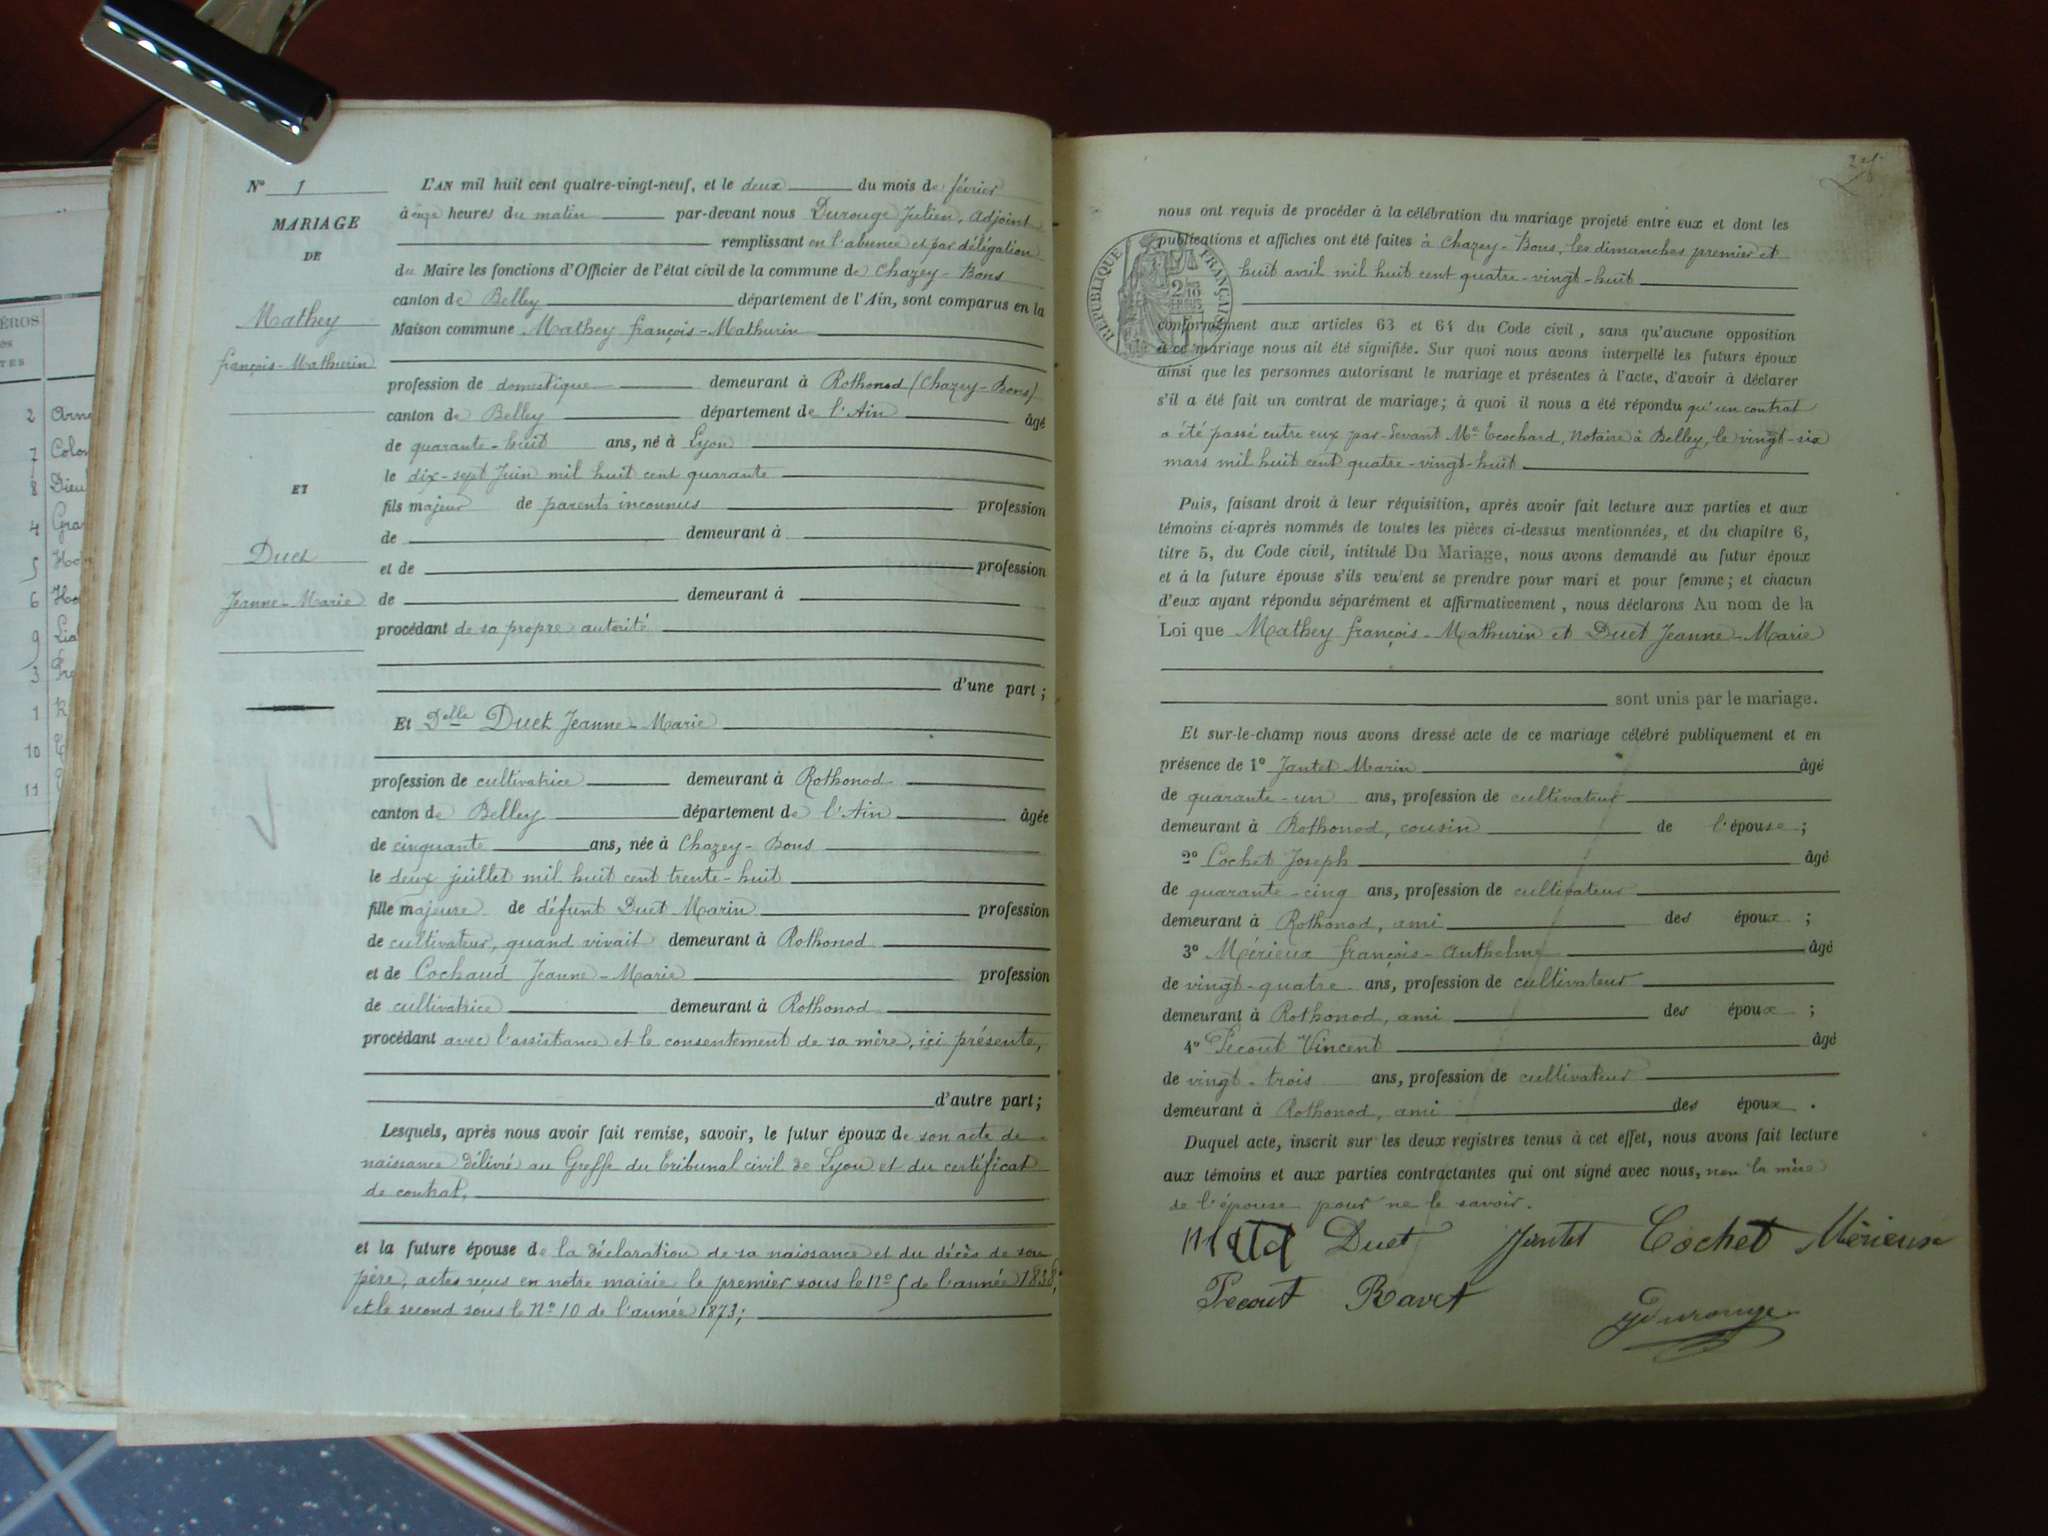 N° 1
MARIAGE
DE
Mathey
françois-Mathurin
ET
Duet
Jeanne-Marie
L'AN mil huit cent quatre-vingt-neuf, et le deux du mois de février
à onze heures du matin par-devant nous Durouge Julien, adjoint
remplissant en l'absence et par délégation
du Maire les fonctions d'Officier de l'état civil de la commune de Chazey-Bons
canton de Belley département de l'Ain, sont comparus en la
Maison commune Mathey françois-Mathurin
profession de domestique demeurant à Rothonod (Chazey-Bons)
canton de Belley département de l'Ain âgé
de quarante-huit ans, né à Lyon
le dix-sept Juin mil huit cent quarante
fils majeur de parents inconnus profession
de demeurant à
et de profession
de demeurant à
procédant de sa propre autorité
d'une part ;
Et Delle Duet Jeanne-Marie
profession de cultivatrice demeurant à Rothonod
canton de Belley département de l'Ain âgée
de cinquante ans, née à Chazey-Bons
le deux juillet mil huit cent trente-huit
fille majeure de défunt Duet Marin profession
de cultivateur, quand vivait demeurant à Rothonod
et de Cochaud Jeanne-Marie profession
de cultivatrice demeurant à Rothonod
procédant avec l'assistance et le consentement de sa mère, ici présente,
d'autre part ;
Lesquels, après nous avoir fait remise, savoir, le futur époux de son acte de
naissance délivré au Greffe du tribunal civil de Lyon et du certificat
de contrat,
et la future épouse de la déclaration de sa naissance et du décès de son
père, actes reçus en notre mairie le premier sous le N° 5 de l'année 1838,
et le second sous le N° 10 de l'année 1873;
nous ont requis de procéder à la célébration du mariage projeté entre eux et dont les
publications et affiches ont été faites à Chazey-Bons, les dimanches premier et
huit avril mil huit cent quatre-vingt-huit
RÉPUBLIQUE FRANÇAISE
conformément aux articles 63 et 64 du Code civil, sans qu'aucune opposition
à ce mariage nous ait été signifiée. Sur quoi nous avons interpellé les futurs époux
ainsi que les personnes autorisant le mariage et présentes à l'acte, d'avoir à déclarer
s'il a été fait un contrat de mariage ; à quoi il nous a été répondu qu'un contrat
a été passé entre eux par-devant Me Ecochard, notaire à Belley, le vingt-six
mars mil huit cent quatre-vingt-huit
Puis, faisant droit à leur réquisition, après avoir fait lecture aux parties et aux
témoins ci-après nommés de toutes les pièces ci-dessus mentionnées, et du chapitre 6,
titre 5, du Code civil, intitulé Du Mariage, nous avons demandé au futur époux
et à la future épouse s'ils veulent se prendre pour mari et pour femme ; et chacun
d'eux ayant répondu séparément et affirmativement, nous déclarons Au nom de la
Loi que Mathey françois-Mathurin et Duet Jeanne-Marie
sont unis par le mariage.
Et sur-le-champ nous avons dressé acte de ce mariage célébré publiquement et en
présence de 1° Jantet Marin âgé
de quarante-un ans, profession de cultivateur
demeurant à Rothonod, cousin de l'épouse ;
2° Cochet Joseph âgé
de quarante-cinq ans, profession de cultivateur
demeurant à Rothonod, ami des époux ;
3° Mérieux françois-Anthelme âgé
de vingt-quatre ans, profession de cultivateur
demeurant à Rothonod, ami des époux ;
4° Pecout Vincent âgé
de vingt-trois ans, profession de cultivateur
demeurant à Rothonod, ami des époux .
Duquel acte, inscrit sur les deux registres tenus à cet effet, nous avons fait lecture
aux témoins et aux parties contractantes qui ont signé avec nous, non la mère
de l'épouse pour ne le savoir.
Duet Jantet Cochet Mérieux
Pecout Ravet
Durouge